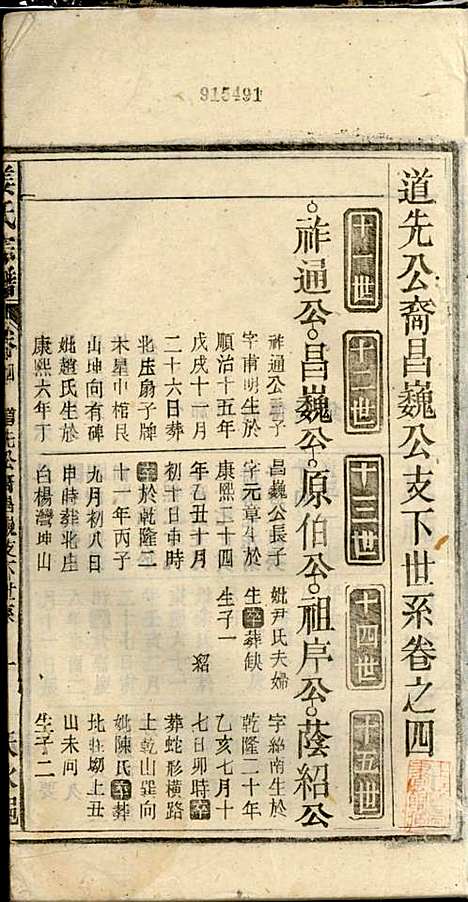 915491
道先公裔昌巍公支下世系卷之四
十一世
十二世
十三世
十四世
十五世
祚通公
昌巍公
原伯公
祖庠公
蔭紹公
字甫明生於
順治十五年
戊戌十一月
二十六日葬
北庄扇子牌
木星中棺艮
山坤向有碑
妣趙氏生於
康熙六年丁
昌巍公長子
字元章生於
康熙二十四
年乙丑十月
初十日申時
卒於乾隆二
十一年丙子
九月初八日
申時葬北庄
白楊灣坤山
妣尹氏夫婦
生卒葬缺
生子一
紹
字紹南生於
乾隆二十年
乙亥七月十
七日卯時
葬蛇形橫路
上乾山巽向
妣陳氏卒葬
北牪塴上丑
山未向
生子二
姜氏宗譜
卷四
道先公裔昌巍支下世系
一